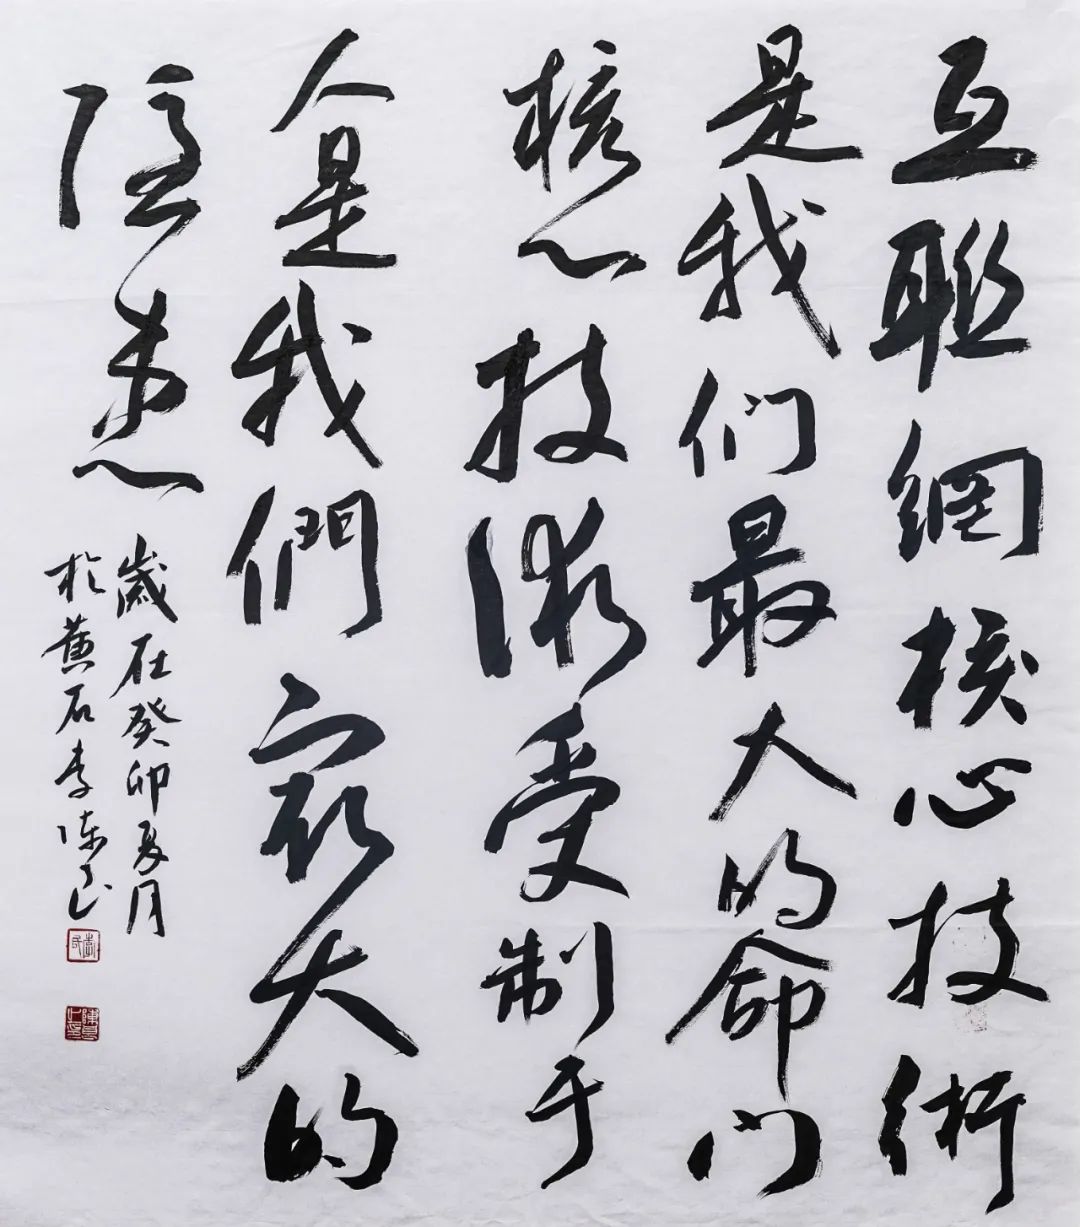 互聯網核心技術
是我们最大的命门
核心技術受制于
人是我們最大的
隐患
歲在癸卯夏月
於黄石李陳